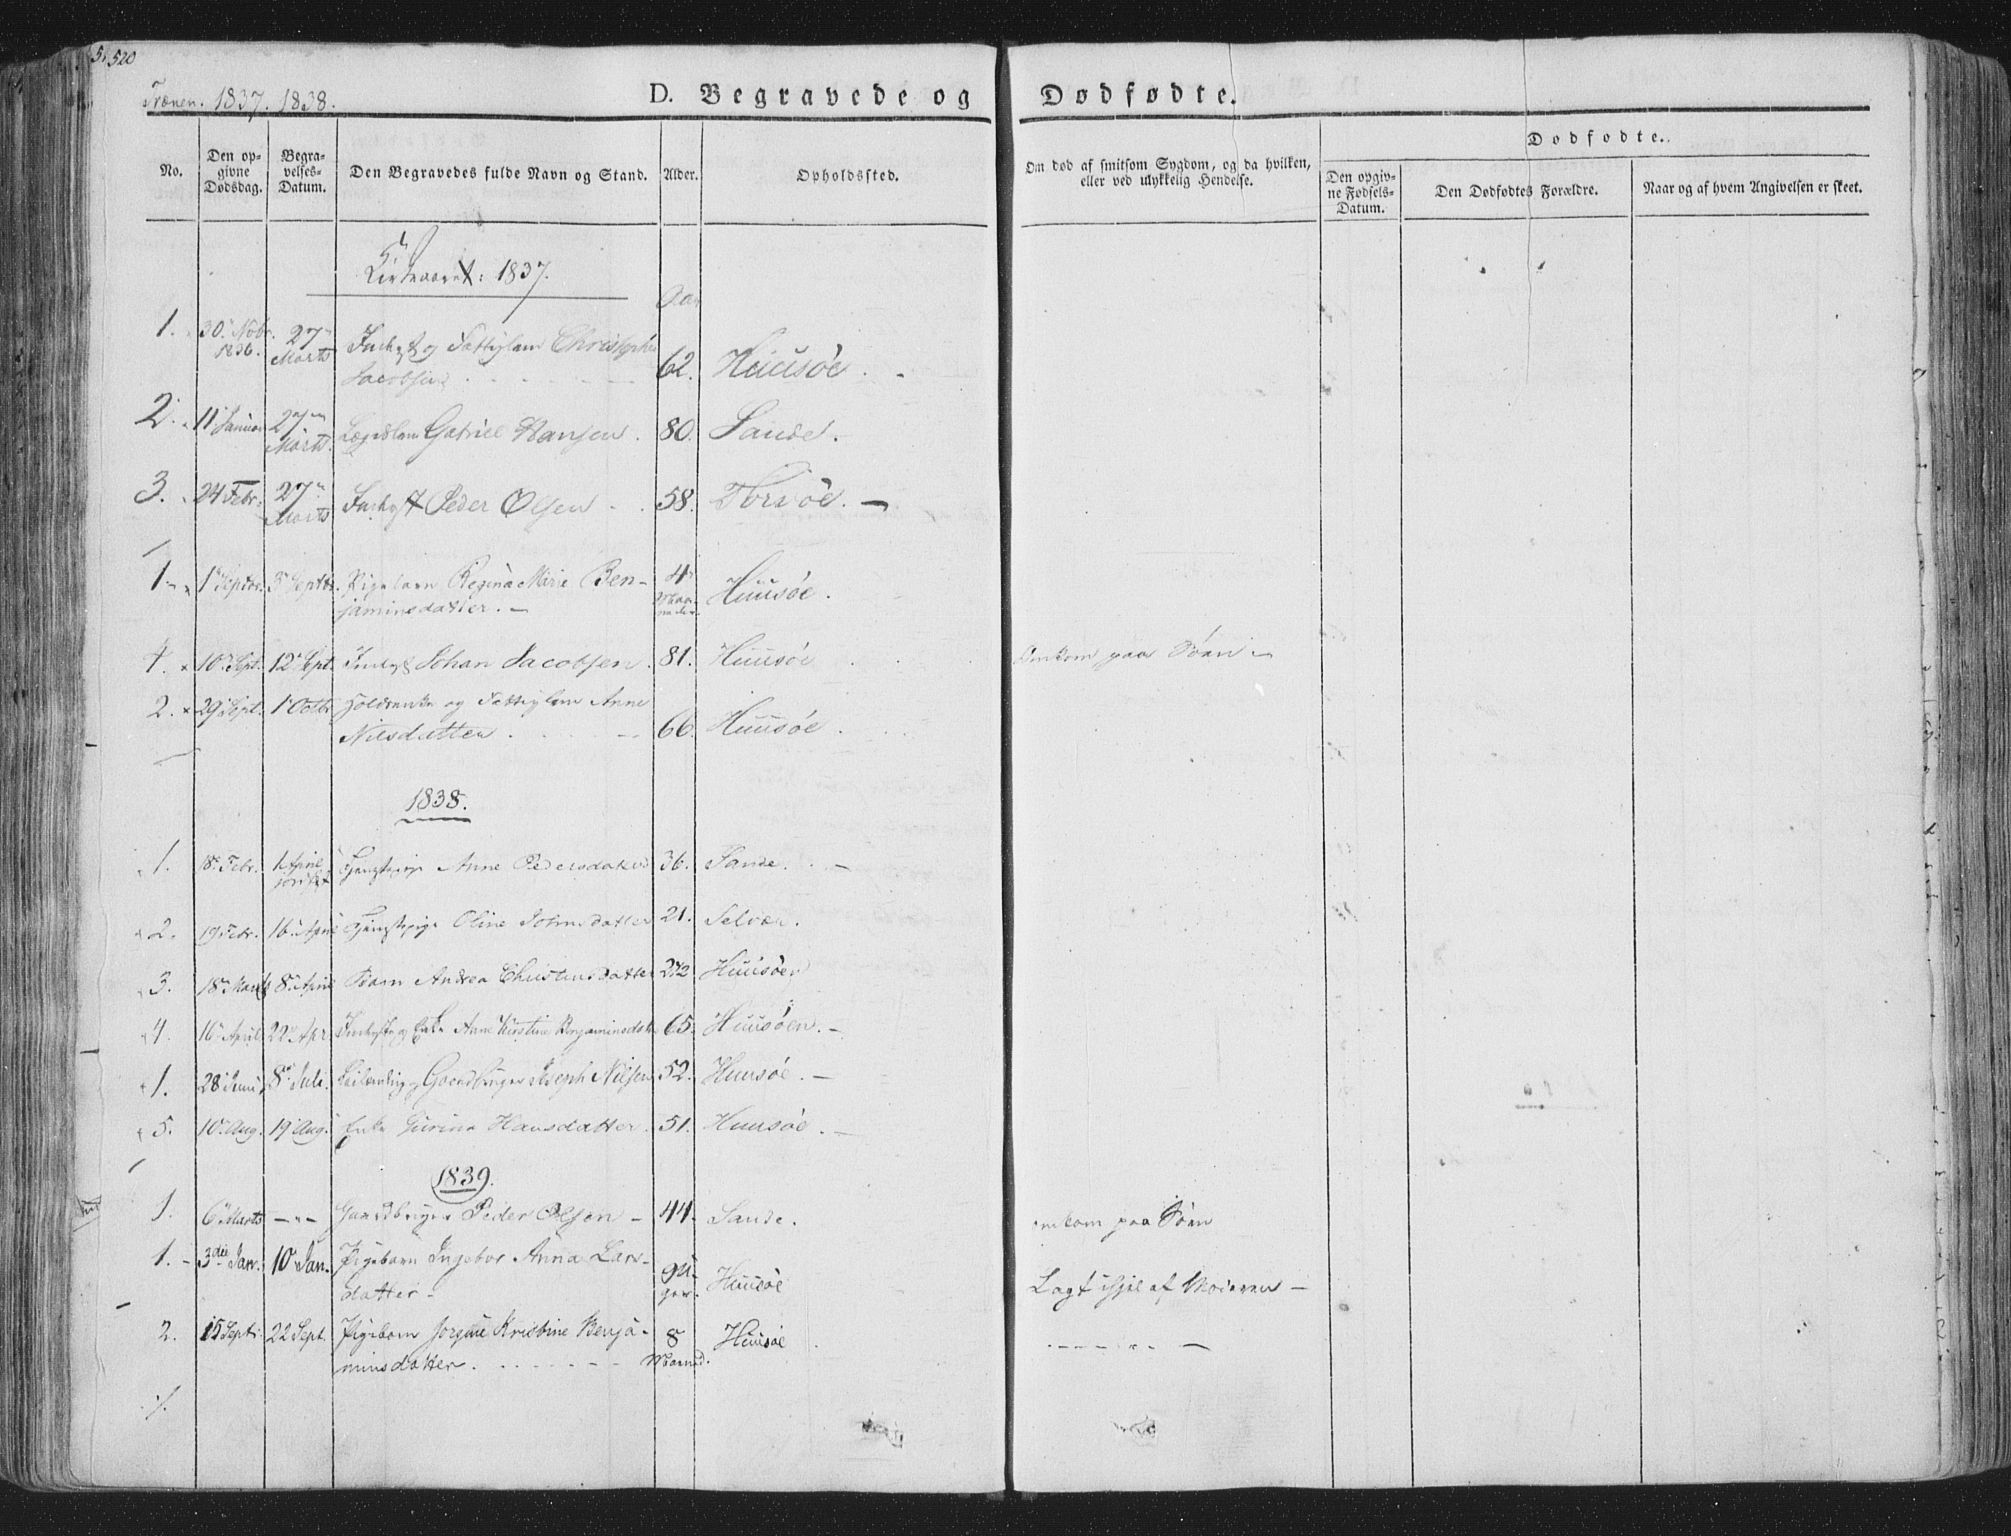 520
Trænen. 1837. 1838.
D. Begravede og Dødfødte.
No.
Den op-
givne
Dødsdag.
Begra-
velses-
Datum.
Den Begravedes fulde Navn og Stand.
Alder.
Opholdssted.
Om død af smitsom Sygdom, og da hvilken,
eller ved ulykkelig Hendelse.
Dødfødte.
Den opgiv-
ne Fødsels-
Datum.
Den Dødfødtes Forældre.
Naar og af hvem Angivelsen er skeet.
Kirkeaaret: 1837.
Aar
1. 30 Nobr. 1836. 27 Marts Indhyst og Fattiglem Christopher
Jacobsen 62. Huusøe.
2. 11 Januar 27 Marts Lægdslem Gabriel Hansen. 80. Sande.
3. 24 Febr. 27 Marts Indhyst Peder Olsen 58. Torvøe.
1. 1 Septbr. 3 Septbr. Pigebarn Regina Marie Ben-
jaminsdatter. 4 Maaneder Huusøe.
4. 10 Sept. 12 Sept. Indhyst Johan Jacobsen. 81. Huusøe Omkom paa Søen
2. 29 Sept. 1 Octbr Anne
Nilsdatter 66. Huusøe.
1838.
1. 18 Febr. 1 April Tjenstepige Anne Pedersdatter 36. Sande.
2. 19 Febr. 16 April Tjenstepige Oline Johnsdatter 21. Selvær.
3. 18 Marts 8 April Barn Andrea Christensdatter 2 1/2 Huusøen
4. 16 April 22 Apr. Enke Anne Kirstine Benjaminsdat. 65. Huusøen.
1. 28 Juni 8 Juli. Leilænding og Gaardbruger Joseph Nilsen 52. Huusøe.
5. 10 Aug. 19 Aug. Enke Gurina Hansdatter. 51. Huusøe.
1839.
1. 6 Marts — " — Gaardbruger Peder Olsen 44. Sande. omkom paa Søen
1. 3die Jan. 10 Jan. Pigebarn Ingebor Anna Lars-
datter Huusøe Lagt ihjel af Moderen
2. 15 Sept. 22 Sept. Pigebarn Jorgine Kristine Benja-
minsdatter. 8 Maaned. Huusøe